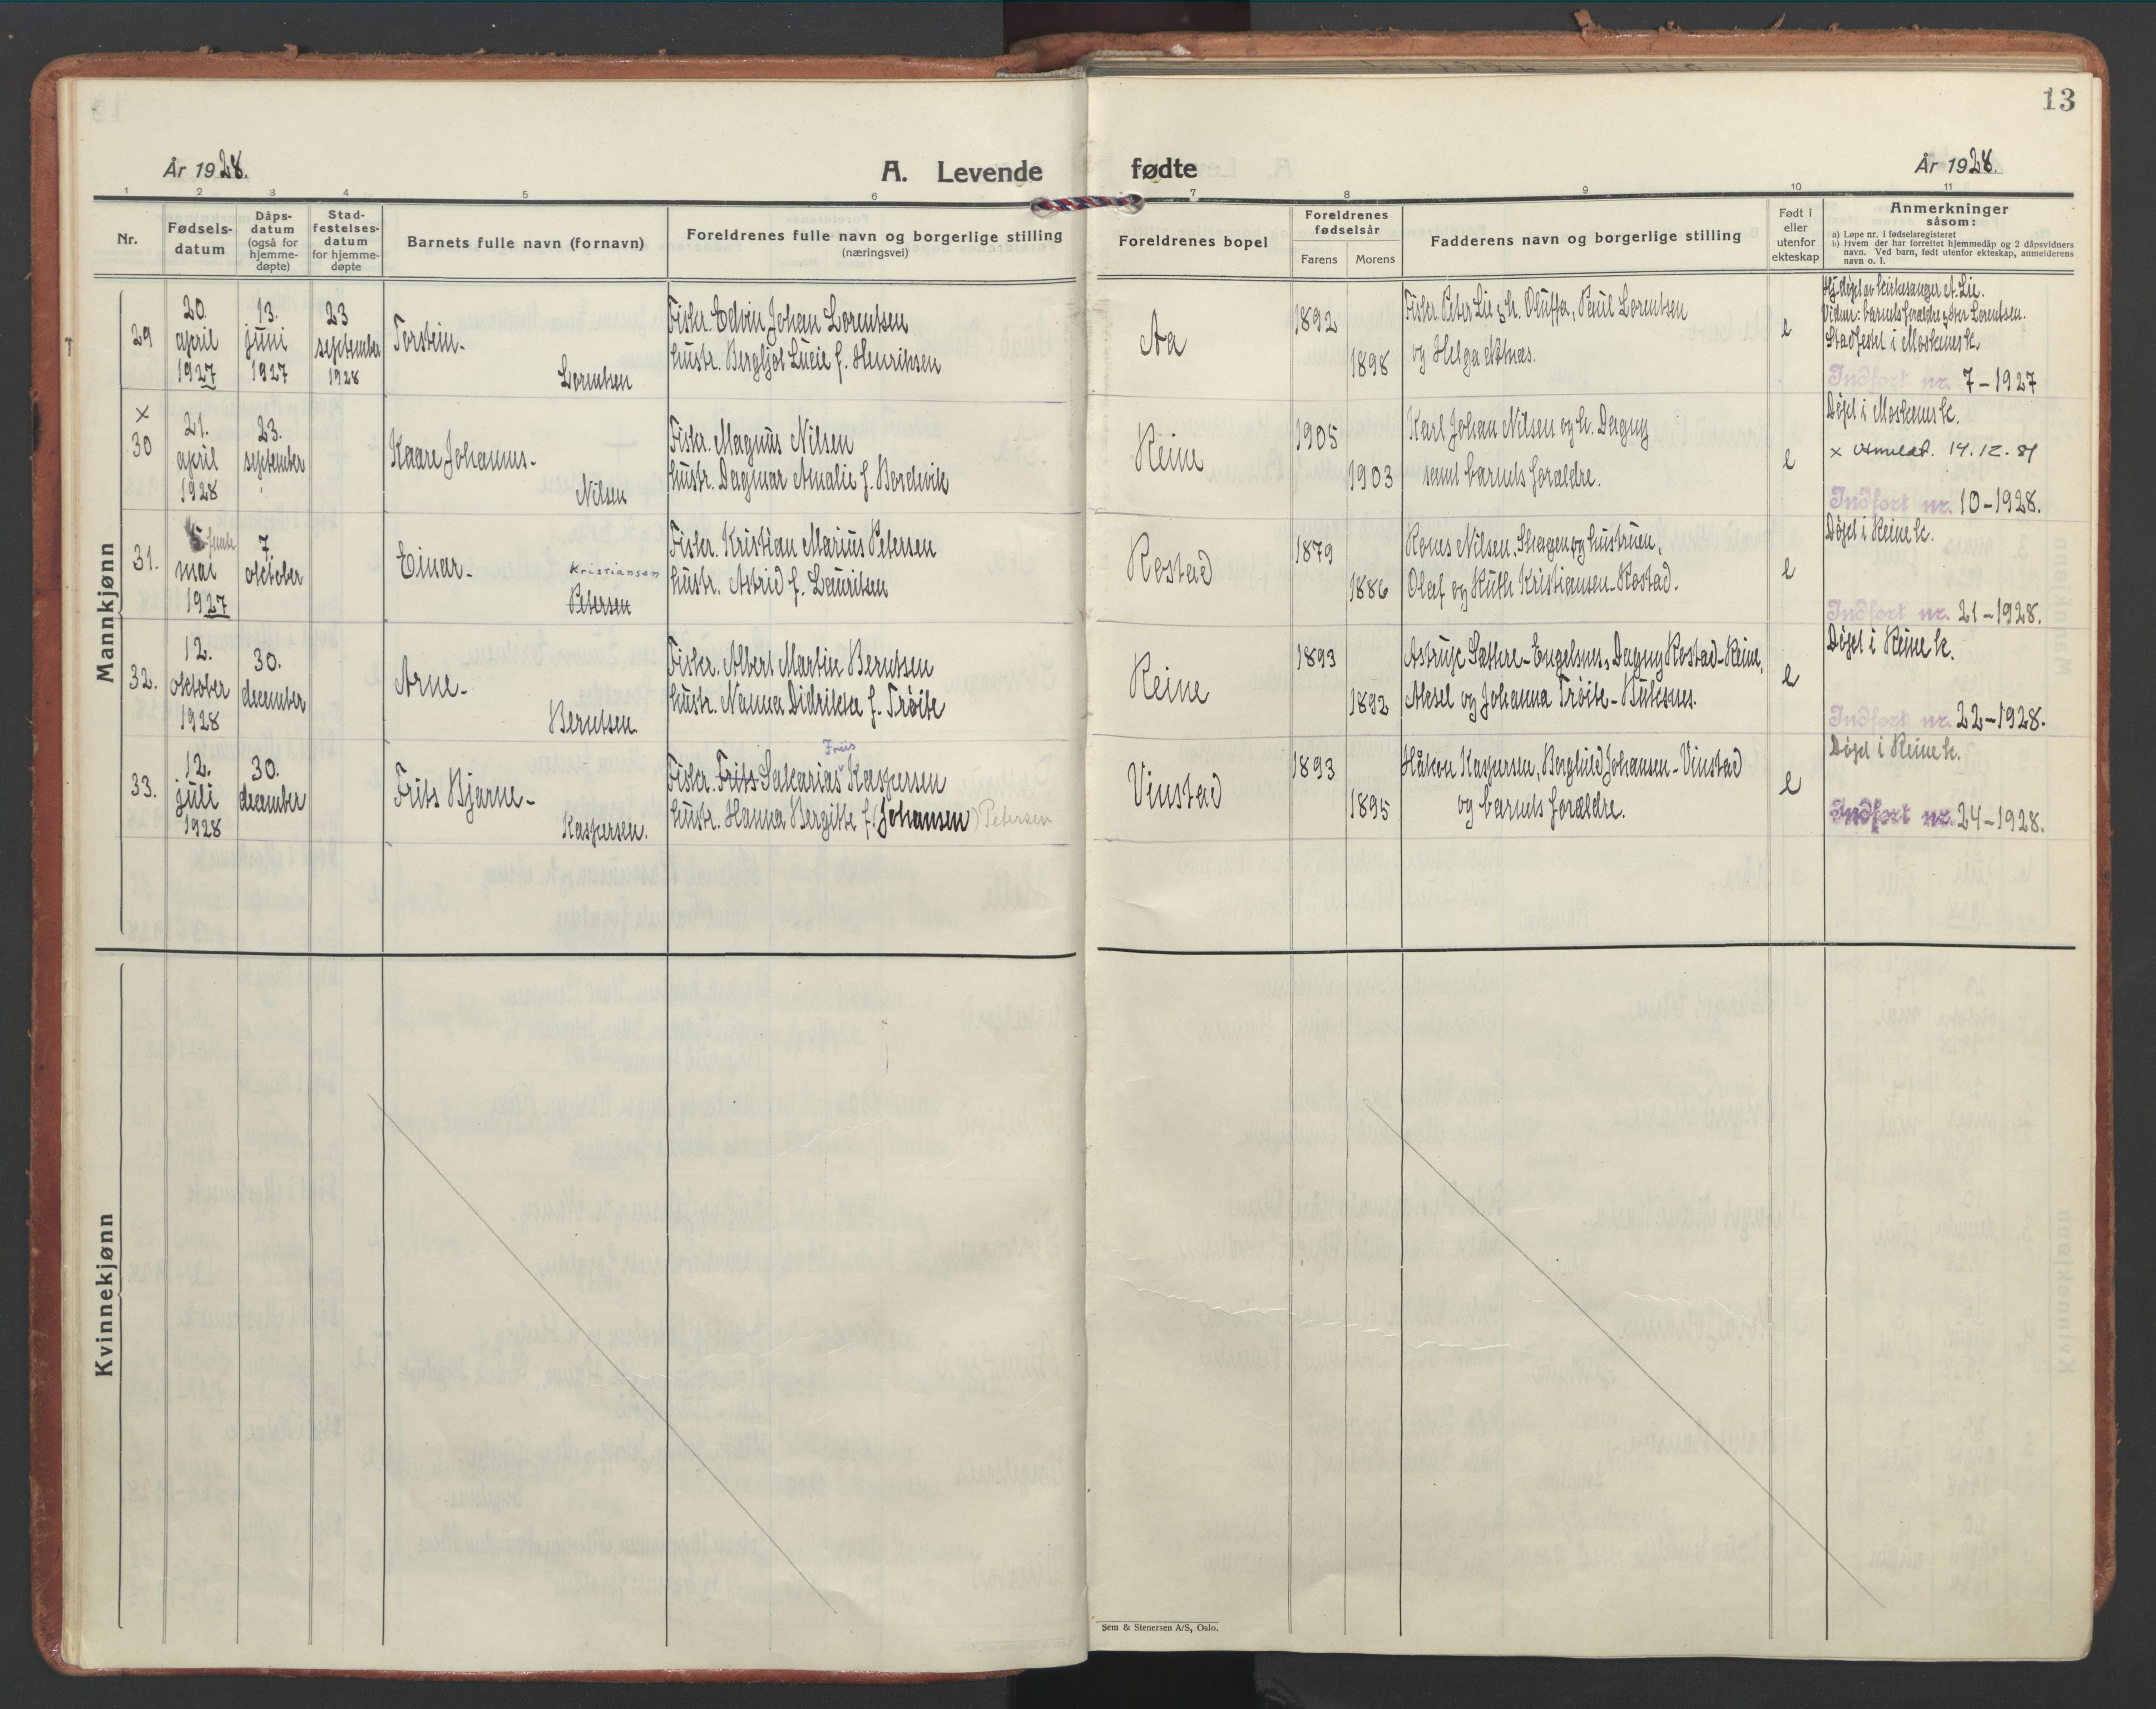 13
År 1928.
A. Levende fødte
År 1928.
1 2 3 4 5 6 7 8 9 10 11
Nr.
Fødsels-
datum
Dåps-
datum
(også for
hjemme-
døpte)
Stad-
festelses-
datum
for hjemme-
døpte
Barnets fulle navn (fornavn)
Foreldrenes fulle navn og borgerlige stilling
(næringsvei)
Foreldrenes bopel
Foreldrenes
fødselsår
Farens
Morens
Fadderens navn og borgerlige stilling
Født i
eller
utenfor
ekteskap
Anmerkninger
såsom:
a) Løpe nr. i fødselsregisteret
b) Hvem der har forrettet hjemmedåp og 2 dåpsvidners
navn. Ved barn, født utenfor ekteskap, anmelderens
navn o. l.
Mannkjønn
29
20.
april
1927
13.
juni
1927
23
september
1928
Torstein-
Lorentsen
Fisker. Edvin Johan Lorentsen
hustr. Bergljot Lucie f. Henriksen
Aa
1892
1898
Fisker. Peter Lie og h. Oluffa, Paul Lorentsen
og Helga
e
Hj.døpt av kirkesanger A. Lie.
Vidner: barnets forældre Lorentsen.
Stadfestet i Moskenes k.
Indført nr. 7-1927
x
30
21.
april
1928
23.
september
Kaare Johannes-
Nilsen
Fisker. Magnus Nilsen
hustr. Dagmar Amalie f. Nordvik
Reine
1905
1903
Karl Johan Nilsen og h. Dagny
samt barnets forældre.
e
Døpt i Moskenes k.
x Utmeldt. 14.12.81
Indført nr. 10-1928.
31.
5
mai
1927
7.
oktober
Einar-
Kristiansen
Petersen
Fisker. Kristian Marius Petersen
hustr. Astrid f. Lauritsen
Rostad
1879
1886
Nilsen, og hustruen,
Olaf og Ruth Kristiansen-Rostad.
e
Døpt i Reine k.
Indført nr. 21-1928.
32.
12.
oktober
1928
30.
december
Arne-
Berntsen
Fisker. Albert Martin Berntsen
hustr. Nanna Didrikke f. Trøite
Reine
1893
1892
Sæthre-Engelsnes, Dagny Rostad-Reine,
Aksel og Johanna Trøite-Buksnes.
e
Døpt i Reine k.
Indført nr. 22-1928.
33.
12.
juli
1928
30.
december
Frits Bjarne-
Kaspersen.
Friis
Fisker. Frits Sakarias Kaspersen
hustr. Hanna Bergitte f. (Johansen) Petersen
Vinstad
1893
1895
Håkon Kaspersen, Borghild Johansen-Vinstad
og barnets forældre.
e
Døpt i Reine k.
Indført nr. 24-1928.
Kvinnekjønn
Sem & Stenersen A/S, Oslo.